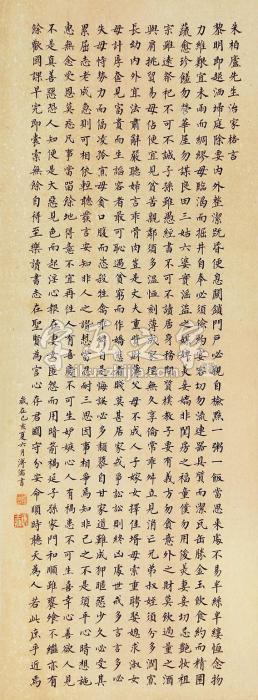 朱柏廬先生治家格言
黎明即起灑掃庭除要內外整潔既昏便息關鎖門戶必親自檢點一粥一飯當思來處不易半絲半縷恆念物
力維艱宜未雨而綢繆毋臨渴而掘井自奉必須儉約宴客切勿流連器具質而潔瓦缶勝金玉飲食約而精園
蔬愈珍饈勿營華屋勿謀良田三姑六婆實淫盜之媒婢美妾嬌非閨房之福童僕勿用俊美妻妾切忌艷妝祖
宗雖遠祭祀不可不誠子孫雖愚經書不可不讀居身務期質樸教子要有義方勿貪意外之財莫飲過量之酒
與肩挑貿易毋佔便宜見貧苦親鄰須多溫恤刻薄成家理無久享倫常乖舛立見消亡兄弟叔姪須分多潤寡
長幼內外宜法肅辭嚴聽婦言乖骨肉豈是丈夫重貲財薄父母不成人子嫁女擇佳壻毋索重聘娶媳求淑女
毋計厚奩見富貴而生諂容者最可恥遇貧窮而作驕態者賤莫甚居家戒爭訟訟則終凶處世戒多言言多必
失毋恃勢力而凌逼孤寡毋貪口腹而恣殺牲禽乖僻自是悔誤必多頹惰自甘家道難成狎暱惡少久必受其
累屈志老成急則可相依輕聽發言安知非人之譖愬當忍耐三思因事相爭焉知非己之不是須平心暗想施
惠無念受恩莫忘凡事當留餘地得意不宜再往人有喜慶不可生妒嫉心人有禍患不可生喜幸心善欲人見
不是真善惡恐人知便是大惡見色而起淫心報在妻女匿怨而用暗箭禍延子孫家門和順雖饔飧不繼亦有
餘歡國課早完即囊橐無餘自得至樂讀書志在聖賢為官心存君國守分安命順時聽天為人若此庶乎近焉
歲在己亥夏六月溥儒書